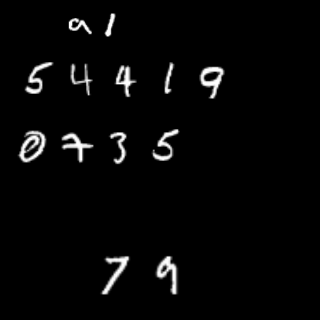 a 1
5 4 4 1 9
0 7 3 5
7 9